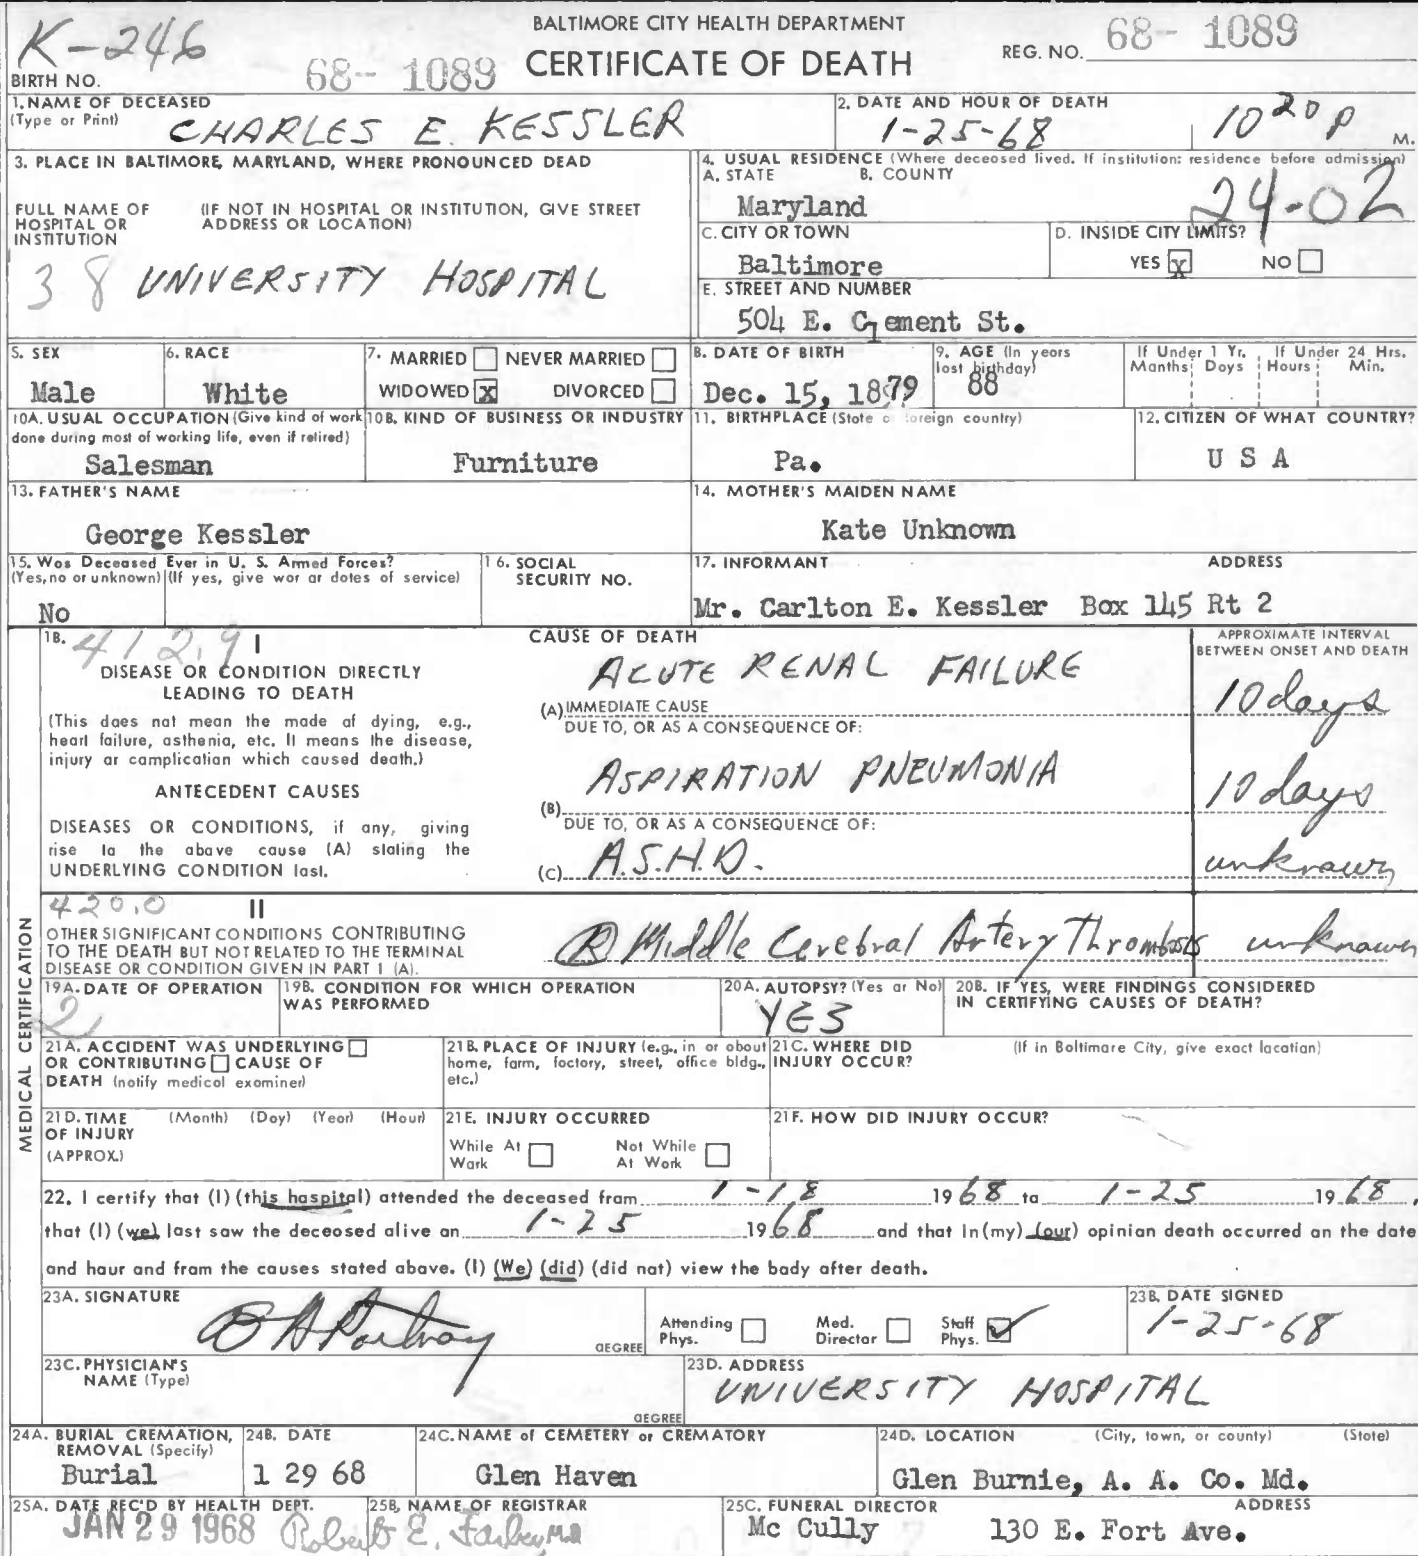 BALTIMORE CITY HEALTH DEPARTMENT
CERTIFICATE OF DEATH
K-246
BIRTH NO.
68- 1089
REG. NO. 68- 1089
1. NAME OF DECEASED
(Type or Print)
CHARLES E. KESSLER
2. DATE AND HOUR OF DEATH
1-25-68 10 20 P M.
3. PLACE IN BALTIMORE, MARYLAND, WHERE PRONOUNCED DEAD
FULL NAME OF HOSPITAL OR INSTITUTION
(IF NOT IN HOSPITAL OR INSTITUTION, GIVE STREET ADDRESS OR LOCATION)
38 UNIVERSITY HOSPITAL
4. USUAL RESIDENCE (Where deceased lived. If institution: residence before admission)
A. STATE B. COUNTY
Maryland 24-02
C. CITY OR TOWN
Baltimore
D. INSIDE CITY LIMITS?
YES X NO
E. STREET AND NUMBER
504 E. Clement St.
5. SEX
Male
6. RACE
White
7. MARRIED NEVER MARRIED
WIDOWED X DIVORCED
8. DATE OF BIRTH
Dec. 15, 1879
9. AGE (In years last birthday)
88
If Under 1 Yr. Months Days
If Under 24 Hrs. Hours Min.
10A. USUAL OCCUPATION (Give kind of work done during most of working life, even if retired)
Salesman
10B. KIND OF BUSINESS OR INDUSTRY
Furniture
11. BIRTHPLACE (State or foreign country)
Pa.
12. CITIZEN OF WHAT COUNTRY?
U S A
13. FATHER'S NAME
George Kessler
14. MOTHER'S MAIDEN NAME
Kate Unknown
15. Was Deceased Ever in U. S. Armed Forces?
(Yes, no or unknown) (If yes, give war or dates of service)
No
16. SOCIAL SECURITY NO.
17. INFORMANT ADDRESS
Mr. Carlton E. Kessler Box 145 Rt 2
MEDICAL CERTIFICATION
18. 412.9 I
DISEASE OR CONDITION DIRECTLY
LEADING TO DEATH
(This does not mean the mode of dying, e.g.,
heart failure, asthenia, etc. It means the disease,
injury or complication which caused death.)
ANTECEDENT CAUSES
DISEASES OR CONDITIONS, if any, giving
rise to the above cause (A) stating the
UNDERLYING CONDITION last.
CAUSE OF DEATH
APPROXIMATE INTERVAL
BETWEEN ONSET AND DEATH
ACUTE RENAL FAILURE 10 days
(A) IMMEDIATE CAUSE
DUE TO, OR AS A CONSEQUENCE OF:
ASPIRATION PNEUMONIA 10 days
(B)
DUE TO, OR AS A CONSEQUENCE OF:
(C) A.S.H.D. unknown
420.0 II
OTHER SIGNIFICANT CONDITIONS CONTRIBUTING
TO THE DEATH BUT NOT RELATED TO THE TERMINAL
DISEASE OR CONDITION GIVEN IN PART I (A).
(R) Middle Cerebral Artery Thrombosis unknown
19A. DATE OF OPERATION
2
19B. CONDITION FOR WHICH OPERATION
WAS PERFORMED
20A. AUTOPSY? (Yes or No)
YES
20B. IF YES, WERE FINDINGS CONSIDERED
IN CERTIFYING CAUSES OF DEATH?
21A. ACCIDENT WAS UNDERLYING
OR CONTRIBUTING CAUSE OF
DEATH (notify medical examiner)
21B. PLACE OF INJURY (e.g., in or about
home, farm, factory, street, office bldg.,
etc.)
21C. WHERE DID
INJURY OCCUR?
(If in Baltimore City, give exact location)
21D. TIME (Month) (Day) (Year) (Hour)
OF INJURY
(APPROX.)
21E. INJURY OCCURRED
While At Work Not While At Work
21F. HOW DID INJURY OCCUR?
22. I certify that (I) (this hospital) attended the deceased from 1-18 1968 to 1-25 1968,
that (I) (we) last saw the deceased alive on 1-25 1968 and that in (my) (our) opinion death occurred on the date
and hour and from the causes stated above. (I) (We) (did) (did not) view the body after death.
23A. SIGNATURE
DEGREE
Attending Phys. Med. Director Staff Phys. ✓
23B. DATE SIGNED
1-25-68
23C. PHYSICIAN'S
NAME (Type)
DEGREE
23D. ADDRESS
UNIVERSITY HOSPITAL
24A. BURIAL CREMATION,
REMOVAL (Specify)
Burial
24B. DATE
1 29 68
24C. NAME of CEMETERY or CREMATORY
Glen Haven
24D. LOCATION (City, town, or county) (State)
Glen Burnie, A. A. Co. Md.
25A. DATE REC'D BY HEALTH DEPT.
JAN 29 1968
25B. NAME OF REGISTRAR
Robert E. Farber, M.D.
25C. FUNERAL DIRECTOR ADDRESS
Mc Cully 130 E. Fort Ave.